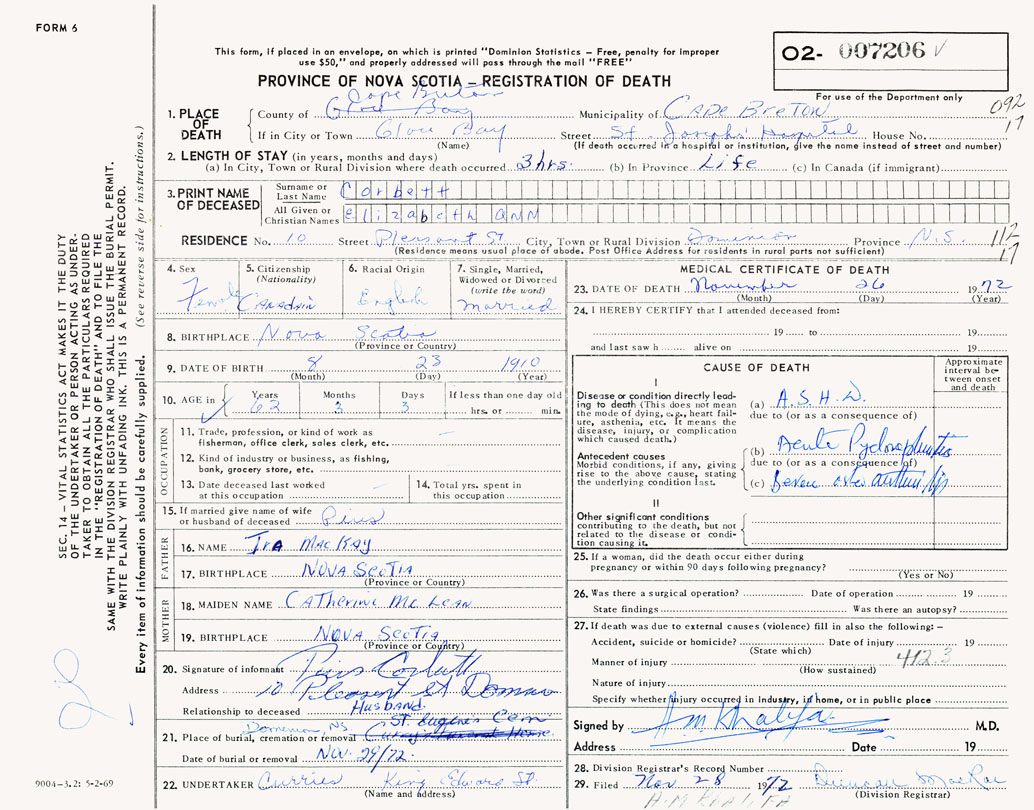 FORM 6
This form, if placed in an envelope, on which is printed "Dominion Statistics – Free, penalty for improper
use $50," and properly addressed will pass through the mail "FREE"
PROVINCE OF NOVA SCOTIA – REGISTRATION OF DEATH
O2- 007206
For use of the Department only
092
17
1. PLACE OF DEATH
County of Glace Bay Cape Breton Municipality of CAPE BRETON
If in City or Town Glace Bay Street St. Joseph's Hospital House No.
(Name) (If death occurred in a hospital or institution, give the name instead of street and number)
2. LENGTH OF STAY (in years, months and days)
(a) In City, Town or Rural Division where death occurred 3 hrs. (b) In Province Life (c) In Canada (if immigrant)
3. PRINT NAME OF DECEASED
Surname or Last Name Corbett
All Given or Christian Names elizabeth ANN
RESIDENCE No. 10 Street Pleasant St City, Town or Rural Division Dominion Province N.S. 112
17
(Residence means usual place of abode. Post Office Address for residents in rural parts not sufficient)
4. Sex Female
5. Citizenship (Nationality) Canadain
6. Racial Origin English
7. Single, Married, Widowed or Divorced (write the word) married
8. BIRTHPLACE Nova Scotia
(Province or Country)
9. DATE OF BIRTH 8 23 1910
(Month) (Day) (Year)
10. AGE in Years 62 Months 3 Days 3 If less than one day old
hrs. or min.
OCCUPATION
11. Trade, profession, or kind of work as
fisherman, office clerk, sales clerk, etc. —
12. Kind of industry or business, as fishing,
bank, grocery store, etc.
13. Date deceased last worked
at this occupation —
14. Total yrs. spent in
this occupation
15. If married give name of wife
or husband of deceased Pius
FATHER
16. NAME Ira MacKay
17. BIRTHPLACE NOVA SCOTIA
(Province or Country)
MOTHER
18. MAIDEN NAME CATHerine Mc Lean
19. BIRTHPLACE NOVA SCOTIA
(Province or Country)
20. Signature of informant Pius Corbett
Address 10 Pleasent St Dominion
Relationship to deceased Husband
St. Eugenes Cem
Dominion, NS
21. Place of burial, cremation or removal
Date of burial or removal Nov. 29/72
22. UNDERTAKER Curries King Edward St.
(Name and address)
MEDICAL CERTIFICATE OF DEATH
23. DATE OF DEATH November 26 1972
(Month) (Day) (Year)
24. I HEREBY CERTIFY that I attended deceased from:
19 to 19
and last saw h alive on 19
CAUSE OF DEATH
Approximate interval between onset and death
I
Disease or condition directly leading to death (This does not mean
the mode of dying, e.g., heart failure, asthenia, etc. It means the
disease, injury, or complication
which caused death.)
(a) A.S.H.D.
due to (or as a consequence of)
Antecedent causes
Morbid conditions, if any, giving
rise to the above cause, stating
the underlying condition last.
(b) Acute Pyelonephritis
due to (or as a consequence of)
(c) Severe osteo arthritis
II
Other significant conditions
contributing to the death, but not
related to the disease or condition causing it.
25. If a woman, did the death occur either during
pregnancy or within 90 days following pregnancy?
(Yes or No)
26. Was there a surgical operation? Date of operation 19
State findings Was there an autopsy?
27. If death was due to external causes (violence) fill in also the following: –
Accident, suicide or homicide? Date of injury 19
(State which)
Manner of injury 412.3
(How sustained)
Nature of injury
Specify whether injury occurred in industry, if home, or in public place
Signed by AM Khalifa M.D.
Address Date 19
28. Division Registrar's Record Number
29. Filed Nov 28 1972 Duncan MacRae
(Division Registrar)
A.M KHALIFA
SEC. 14 – VITAL STATISTICS ACT MAKES IT THE DUTY
OF THE UNDERTAKER OR PERSON ACTING AS UNDERTAKER TO OBTAIN ALL THE PARTICULARS REQUIRED
IN THE "REGISTRATION OF DEATH" AND TO FILE THE
SAME WITH THE DIVISION REGISTRAR WHO SHALL ISSUE THE BURIAL PERMIT.
WRITE PLAINLY WITH UNFADING INK. THIS IS A PERMANENT RECORD.
Every item of information should be carefully supplied. (See reverse side for instructions.)
9004-3.2: 5-2-69